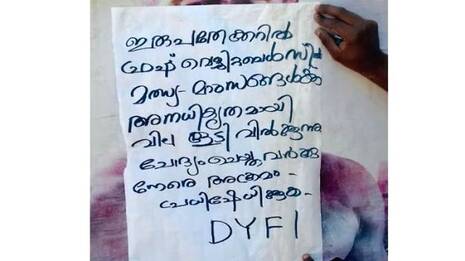 ഇരുപത്തേക്കറിൽ
ഫ്രഷ് വെജിറ്റബൾസിൽ
മത്സ്യ-മാംസങ്ങൾക്ക്
അനധികൃതമായി
വില കൂട്ടി വിൽക്കുന്നു
ചോദ്യംചെയ്തവർക്കു
നേരെ അക്രമം-
പ്രധിഷേധിക്കുക-
DYFI